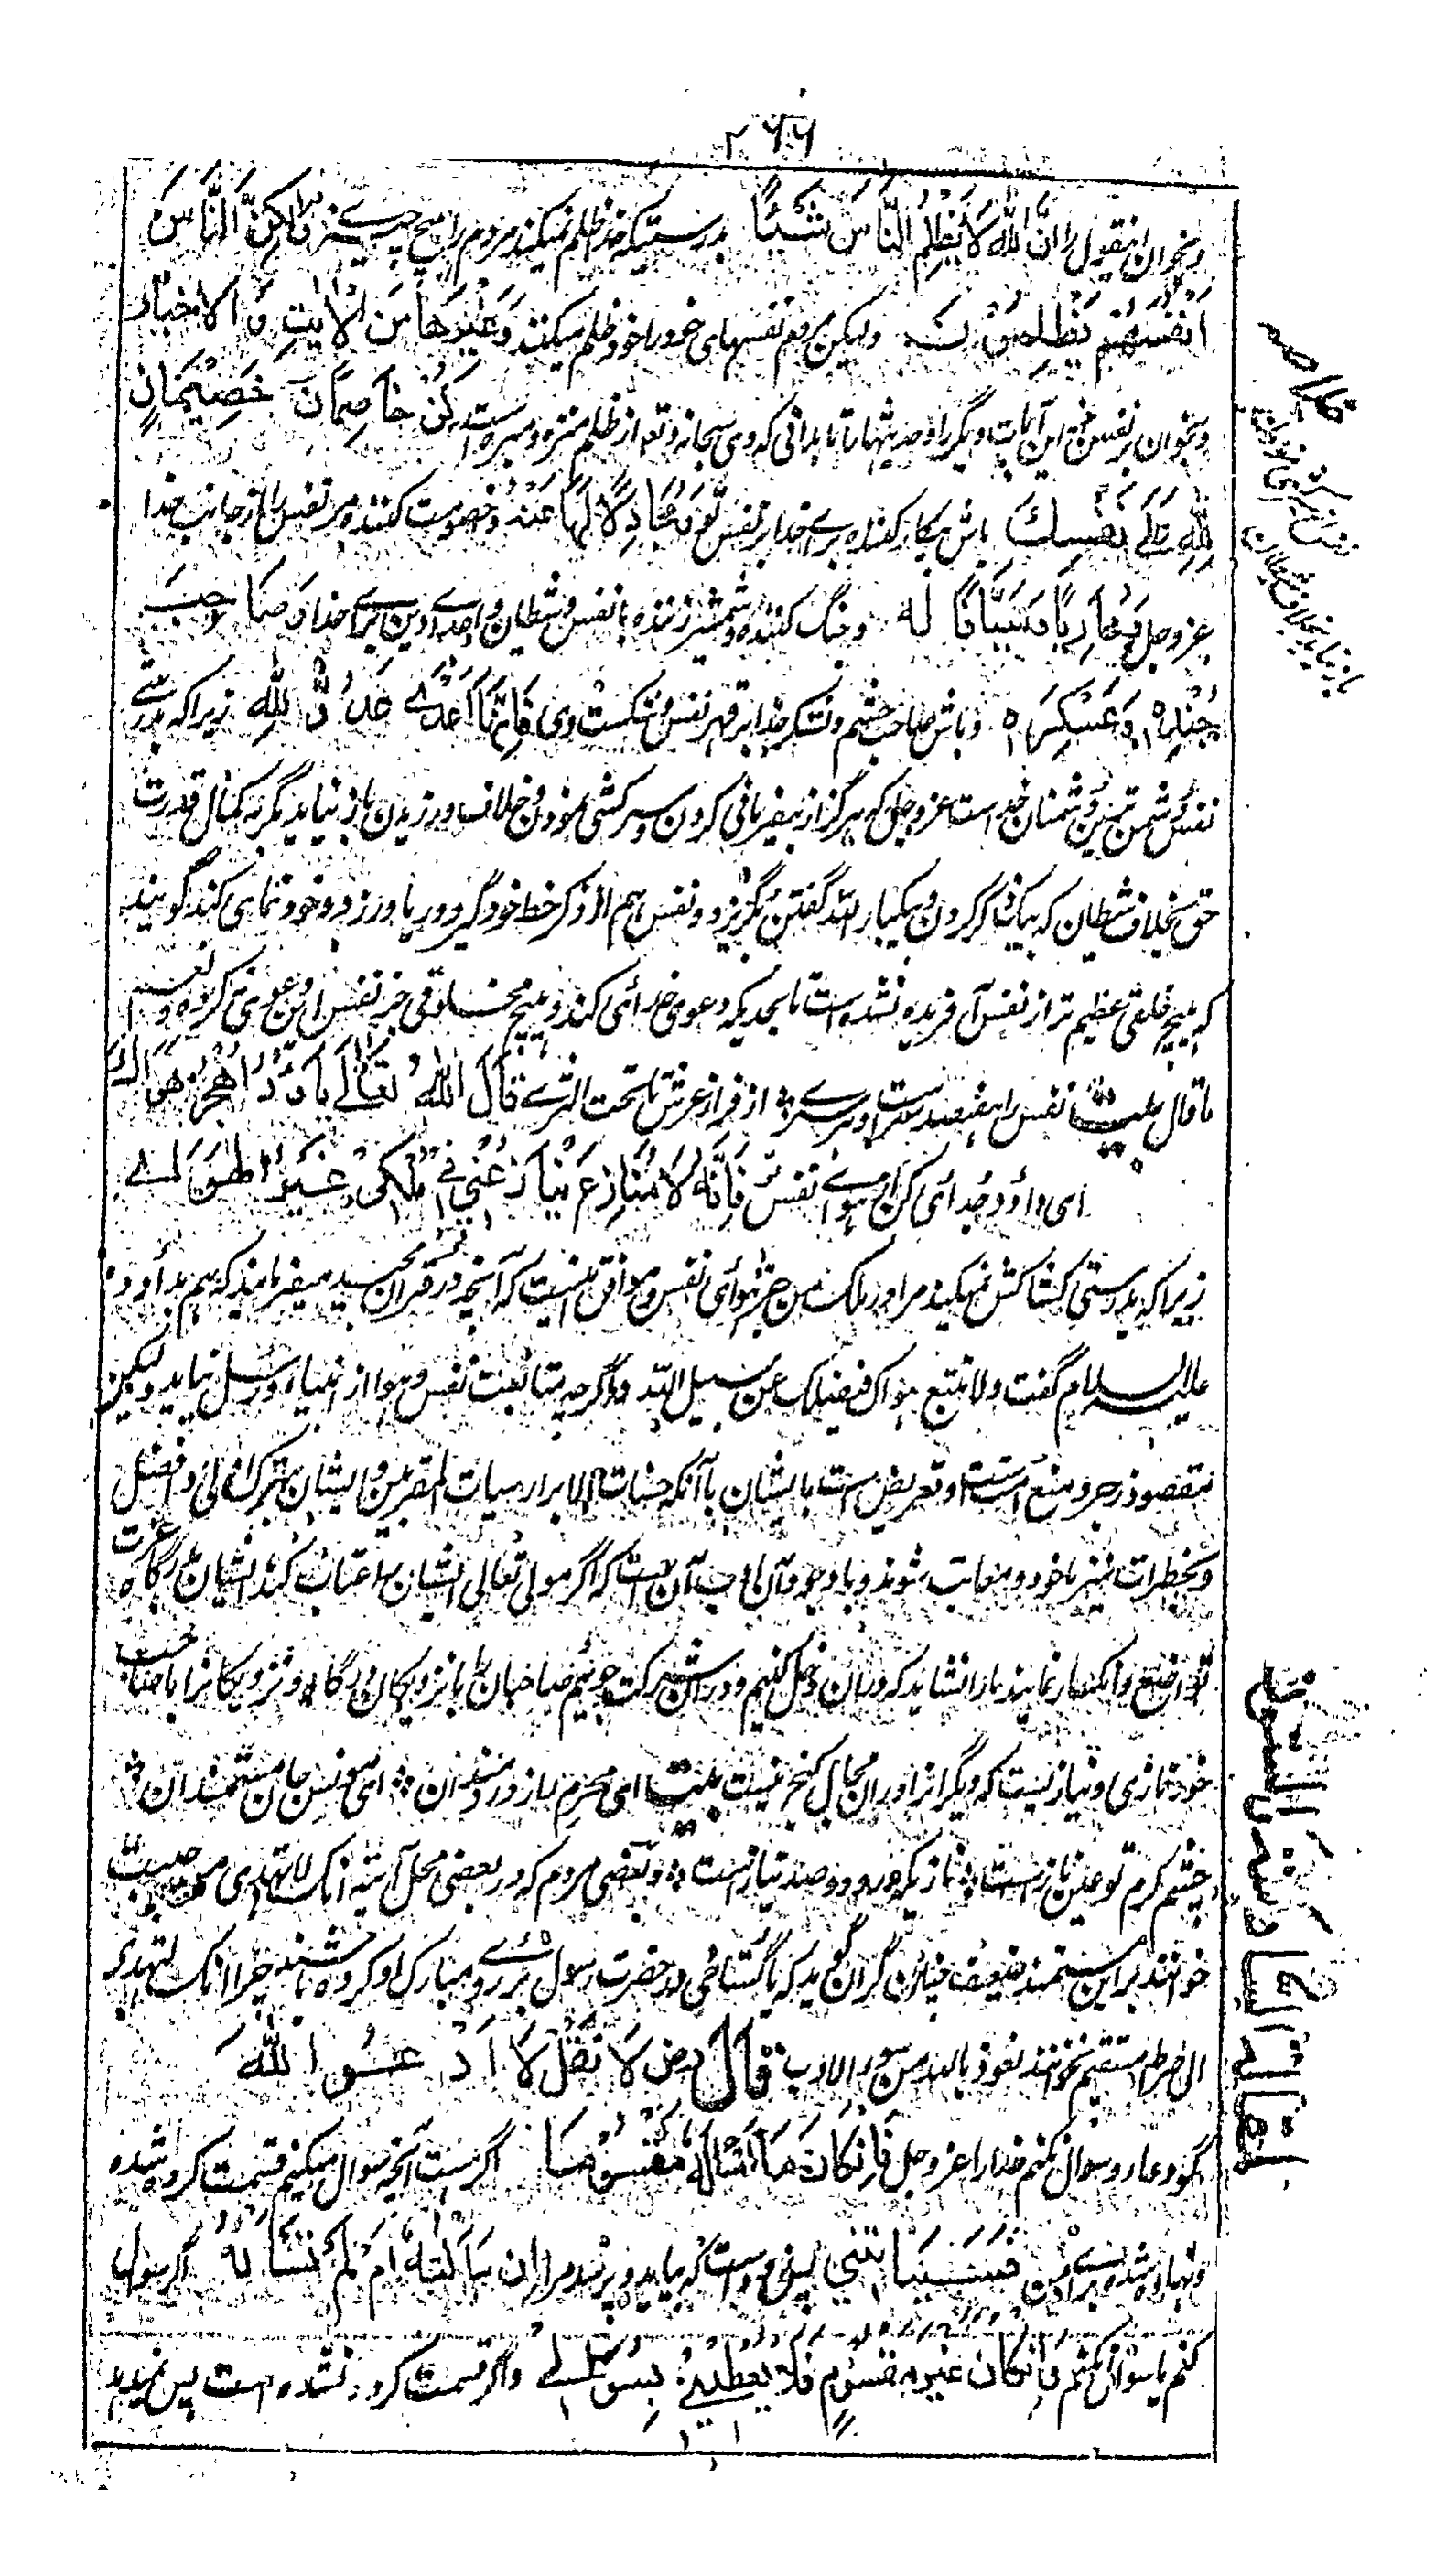 ۲۶۶
و بخوان این قول را اِنَّ اللّٰهَ لَا یَظْلِمُ النَّاسَ شَیْئًا بدرستیکه خدا ظلم نمیکند مردم را هیچ چیزے وَلٰکِنَّ النَّاسَ
اَنْفُسَهُمْ یَظْلِمُوْنَ ولیکن مردم نفسهای خود را خود ظلم میکنند وَغَیْرِهَا مِنَ الْاٰیٰتِ وَالْاَخْبَارِ
و بخوان بر نفس خود این آیات دیگر را و حدیثها را تا بدانی که وی سبحانه و تع از ظلم منزه و مبرا ست کُنْ خَاصِمًا خَصِیْمَانِ
لِلّٰهِ عَلٰے نَفْسِكَ باش پیکار کننده برے خدا بر نفس تو مُجَادِلًا لَهَا عَنْهُ و خصومت کننده مر نفس را از جانب خدا
عز وجل وَمُحَارِبًا وَسَیَّافًا لَه و جنگ کننده و شمشیر زننده با نفس و شیطان و اعداے دین برے خدا وَصَاحِبَ
جُنْدِهٖ وَعَسْکَرِهٖ و باش صاحب حشم و لشکر خدا بر قهر نفس و شکست وی فَاِنَّهَا اَعْدٰے عَدُوٍّ لِلّٰهِ زیراکه بدرستے
نفس دشمن ترین دشمنان خداست عز وجل که هرگز از بیفرمانی کردن و سرکشی نمودن و خلاف ورزیدن باز نیاید مگر به کمال قدرت
حق بخلاف شیطان که بیک ذکر کردن و یکبار الله گفتن بگریزد و نفس هم از ذکر خط خود گیرد و ریا ورزد و خود نمای کند گویند
که هیچ خلقی عظیم تر از نفس آفریده نشده است تا بحدیکه دعوی خدائی کند و هیچ مخلوقی جز نفس این دعوی نکرده و نعم
ما قال بیت نفس را هفتصد سر است و هر سرے ٭ از فراز عرش تا تحت الثرے قَالَ اللّٰهُ تَعَالٰے یَا دَاوٗدُ اهْجُرْ هَوَاكَ
ای داؤد جدائی کن از هواے نفس فَاِنَّهٗ لَا مُنَازِعَ یُنَازِعُنِیْ فِیْ مُلْکِیْ غَیْرُ الْهَوٰے
زیراکه بدرستی کشاکش نمیکند مرا در ملک من جز هوای نفس و موافق اینست که آنچه در قرآن مجید میفرمایند که هم بداؤد
علیه السلام گفت ولا تتبع هواک فیضلک عن سبیل الله و اگرچه متابعت نفس و هوا از انبیاء و رسل نیاید ولیکن
مقصود زجر و منع است و تعریض ست با ایشان با آنکه حسنات الابرار سیات المقربین و ایشان بترک اولی و افضل
و بخطرات نیز ماخوذ و معاتب شوند و با وجود آن ادب آن ست که اگر مولی تعالی ایشان را عتاب کند ایشان بدرگاه عزت
تواضع و انکسار نمایند ما را نشاید که در آن دخل کنیم و در آن شرکت جوئیم صاحبان را با نزدیکان درگاه و نزدیکانرا با صاحب
خود نازی و نیازیست که دیگرانرا در ان مجال گنج نیست بیت ای محرم راز دردمندان ٭ ای مونس جان مستمندان ٭
چشم کرم تو عین نازست ٭ نازیکه درو دو صد نیازست ٭ و بعضی مردم که در بعضی محل آیته انک لا تهدی من احببت
خوانند بر این مستمند ضعیف چنان گران گوید که یا گستاخی در حضرت رسول برروے مبارک او کرده باشند چرا انک لتهدی
الی صراط مستقیم نخوانند نعوذ بالله من سوء الادب قَالَ رض لَا تَقُلْ لَا اَدْعُوا اللّٰهَ
مگو دعا و سوال نکنم خدا را عز وجل فَاِنْ کَانَ مَا اَسْاَلُهٗ مَقْسُوْمًا اگر هست آنچه سوال میکنم قسمت کرده شده
و نهاده شده براے من فَسَیَاْتِیْنِیْ پس زود است که بیاید و برسد مرا آن سَاَلْتُهٗ اَمْ لَمْ اَسْاَلْهُ اگر سوال
کنم یا سوال نکنم وَاِنْ کَانَ غَیْرَ مَقْسُوْمٍ فَلَا یُعْطِیْنِیْ بِسُؤَالِیْ و اگر قسمت کرده نشده است پس نمیدهد